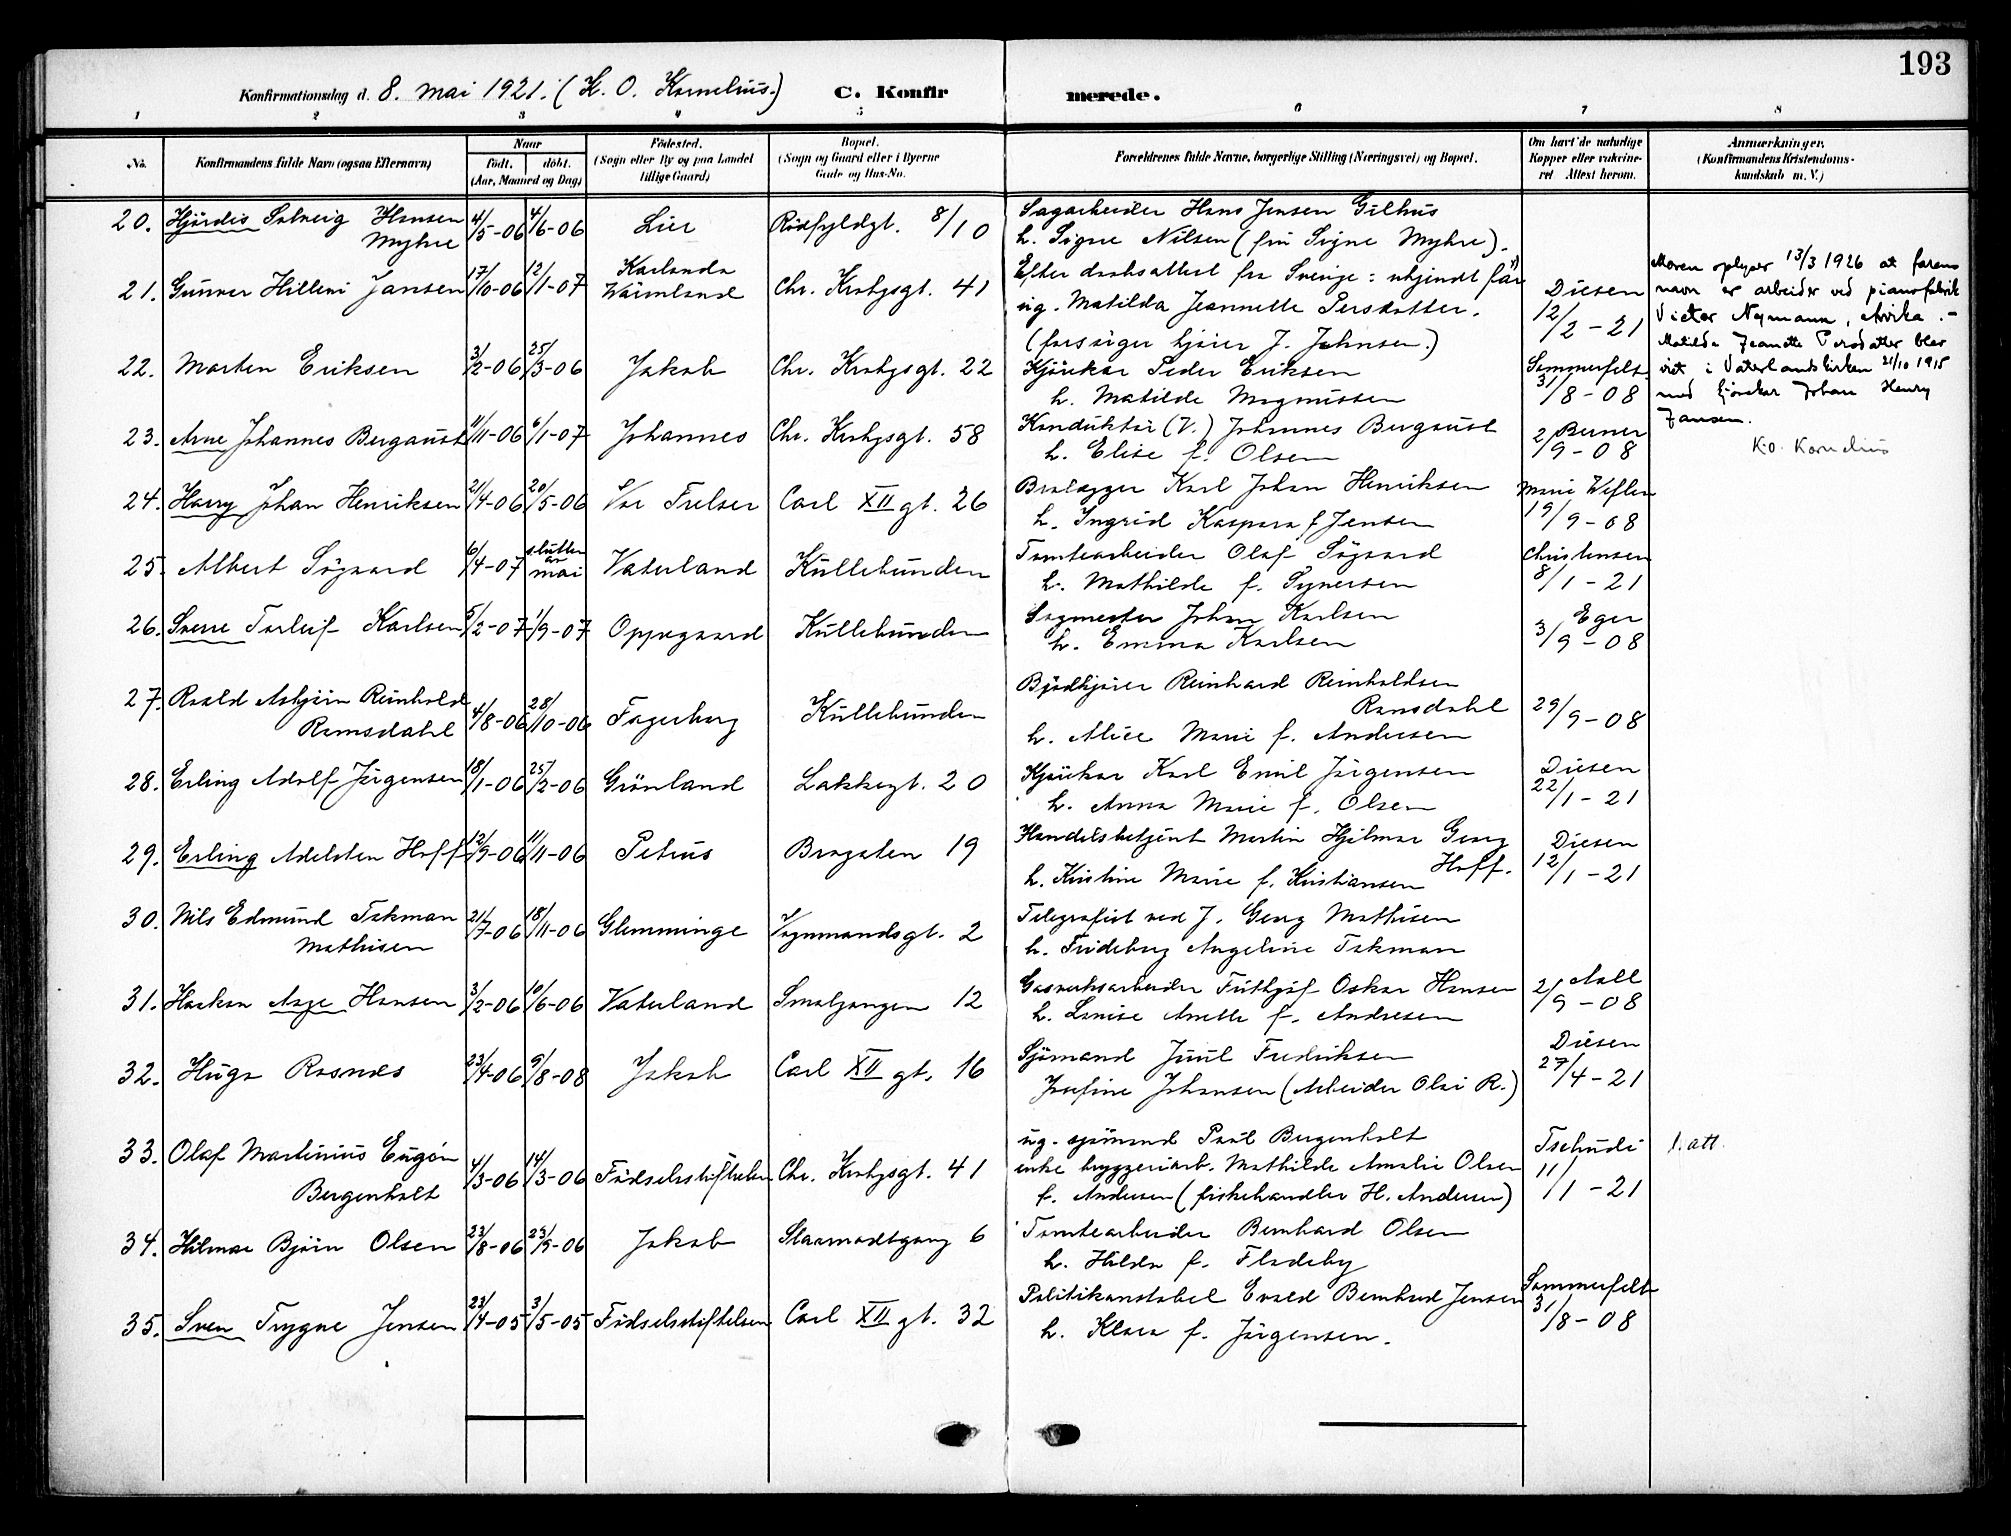 193
Konfirmationsdag d. 8. mai 1921. (K. O. Kornelius.) C. Konfirmerede.
1 2 3 4 5 6 7 8
No. Konfirmandens fulde Navn (ogsaa Efternavn) Naar født. døbt. (Aar, Maaned og Dag) Fødested. (Sogn eller By og paa Landet tillige Gaard) Bopæl. (Sogn og Gaard eller i Byerne Gade og Hus-No. Forældrenes fulde Navne, borgerlige Stilling (Næringsvei) og Bopæl. Om havt de naturlige Kopper eller vakcineret Attest herom. Anmærkninger. (Konfirmandens Kristendomskundskab m. V.)
20. Hjördis Solveig Hansen Myhre 4/5-06 4/6-06 Lier Rödfyldgt. 8/10 Sagarbeider Hans Jensen Gilhus
h. Signe Nilsen (fru Signe Myhre).
21. Gunnar Hillevi Jansen 17/10-06 12/1-07 Karlanda Wärmland Chr. Krohgsgt. 41 Efter daabsattest fra Sverige: ukjendt far
ug. Matilda Jeannette Persdotter.
(forsörger kjörer J. Johnsen.) Diesen 12/2-21
Moren oplyser 13/3 1926 at farens
navn er arbeider ved pianofabrik
Victor Nymann, Arvika.-
Matilda Jeanette Persdatter blev
viet i Vaterlandskirken 21/10 1915
med kjörekar Johan Henry
Jansen.
K.O. Kornelius
22. Morten Eriksen 3/2-06 25/3-06 Jakob Chr. Krohgsgt. 22 Kjörekar Peder Eriksen
h. Matilde Magnussen Sommerfelt 31/8-08
23. Arne Johannes Bergaust 11/11-06 6/1-07 Johannes Chr. Krohgsgt. 58 Konduktör (V.) Johannes Bergaust
h. Elise f. Olsen Berner 2/9-08
24. Harry Johan Henriksen 21/4-06 20/5-06 Vor Frelser Carl XII gt. 26 Brolægger Karl Johan Henriksen
h. Ingrid Kaspara f. Jensen Marie 19/9-08
25. Albert Sögaard 6/4-07 slutten av mai Vaterland Kullebunden Tomtearbeider Olaf Sögaard
h. Mathilde f. Synersen Christensen 8/1-21
26. Sverre Torleif Karlsen 5/2-07 1/9-07 Oppegaard Kullebunden Sagmester Johan Karlsen
h. Emma Karlsen Eger 3/9-08
27. Roald Asbjörn Reinholdt Ramsdahl 4/8-06 28/10-06 Fagerborg Kullebunden Brödkjörer Reinhard Reinholdsen
Ramsdahl
h. Alice Marie f. Andersen 29/9-08
28. Erling Adolf Jörgensen 18/1-06 25/2-06 Grönland Lakkegt. 20 Kjörekar Karl Emil Jörgensen
h. Anna Marie f. Olsen Diesen 22/1-21
29. Erling Adelsten Hoff 12/9-06 11/11-06 Petrus Brogaten 19 Handelsbetjent Martin Hjalmar Georg
Hoff.
h. Kristine Marie f. Kristiansen Diesen 12/1-21
30. Nils Edmund Takman Mathisen 21/7-06 18/11-06 Glemminge Vognmandsgt. 2 Telegrafist ved J. Georg Mathisen
h. Frideborg Angeline Takman
31. Haakon Aage Hansen 3/2-06 10/6-06 Vaterland Smalgangen 12 Gasverksarbeider Frithjof Oskar Hansen
h. Lovise Anette f. Andresen Aall 2/9-08
32. Hugo Rosnæs 23/4-06 9/8-08 Jakob Carl XII gt. 16 Sjömand Juul Fredriksen
Josefine Johansen (Arbeider Olai R.) Diesen 27/4-21
33. Olaf Martinius Eugén Bergenholt 4/3-06 14/3-06 Födselsstiftelsen Chr. Krohgsgt. 41 ug. sjömand Paul Bergenholt
enke bryggeriarb. Mathilde Amalie Olsen
f. Andersen (fiskehandler H. Andersen) Tschudi 11/1-21 1. att.
34. Hilmar Björn Olsen 23/8-06 23/9-06 Jakob Staarmodtgang 6 Tomtearbeider Bernhard Olsen
h. Hilda f. Fladeby
35. Sven Trygve Jensen 23/4-05 3/5-05 Födselsstiftelsen Carl XII gt. 32 Politikonstabel Evald Bernhard Jensen
h. Klara f. Jörgensen. Sommerfelt 31/8-08